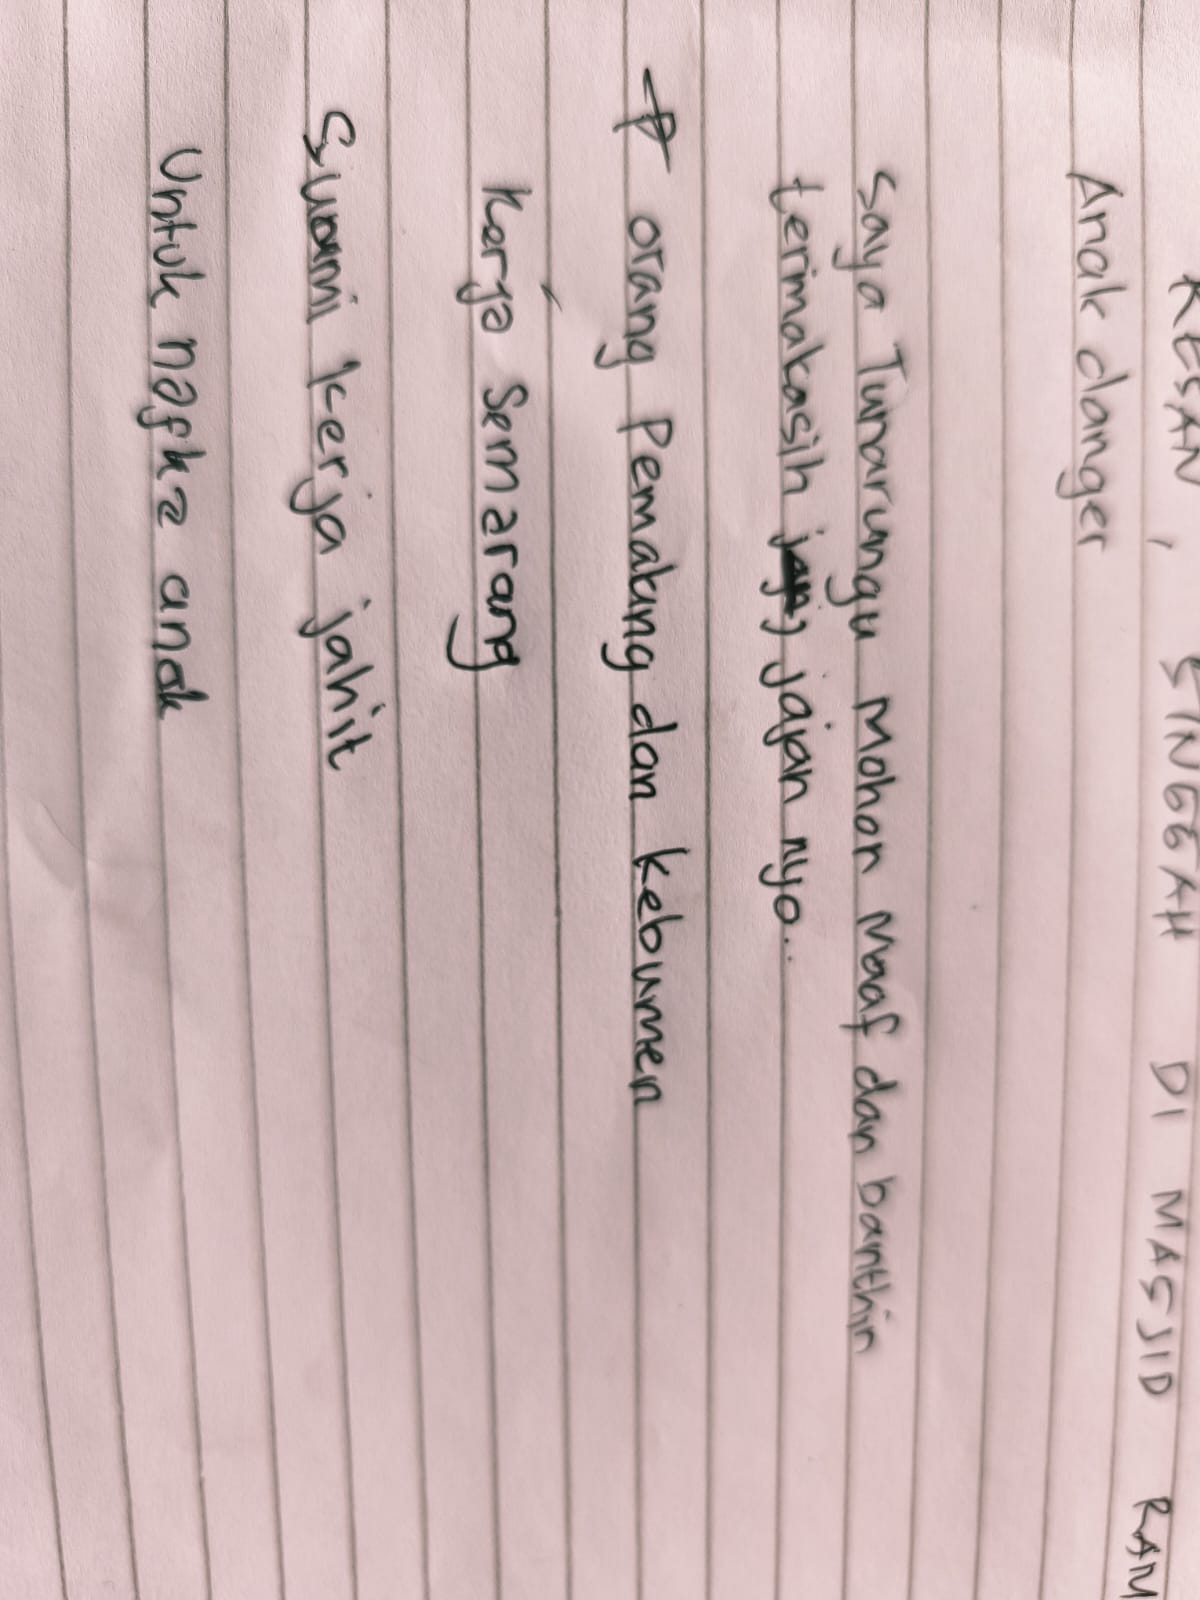 KESAN, SINGGAH DI MASJID RAM
Anak danger
Saya Tunarungu Mohon Maaf dan banthin
terimakasih jajan nyo...
orang Pemalung dan kebumen
Kerja Semarang
Suami kerja jahit
Untuk nafka anak